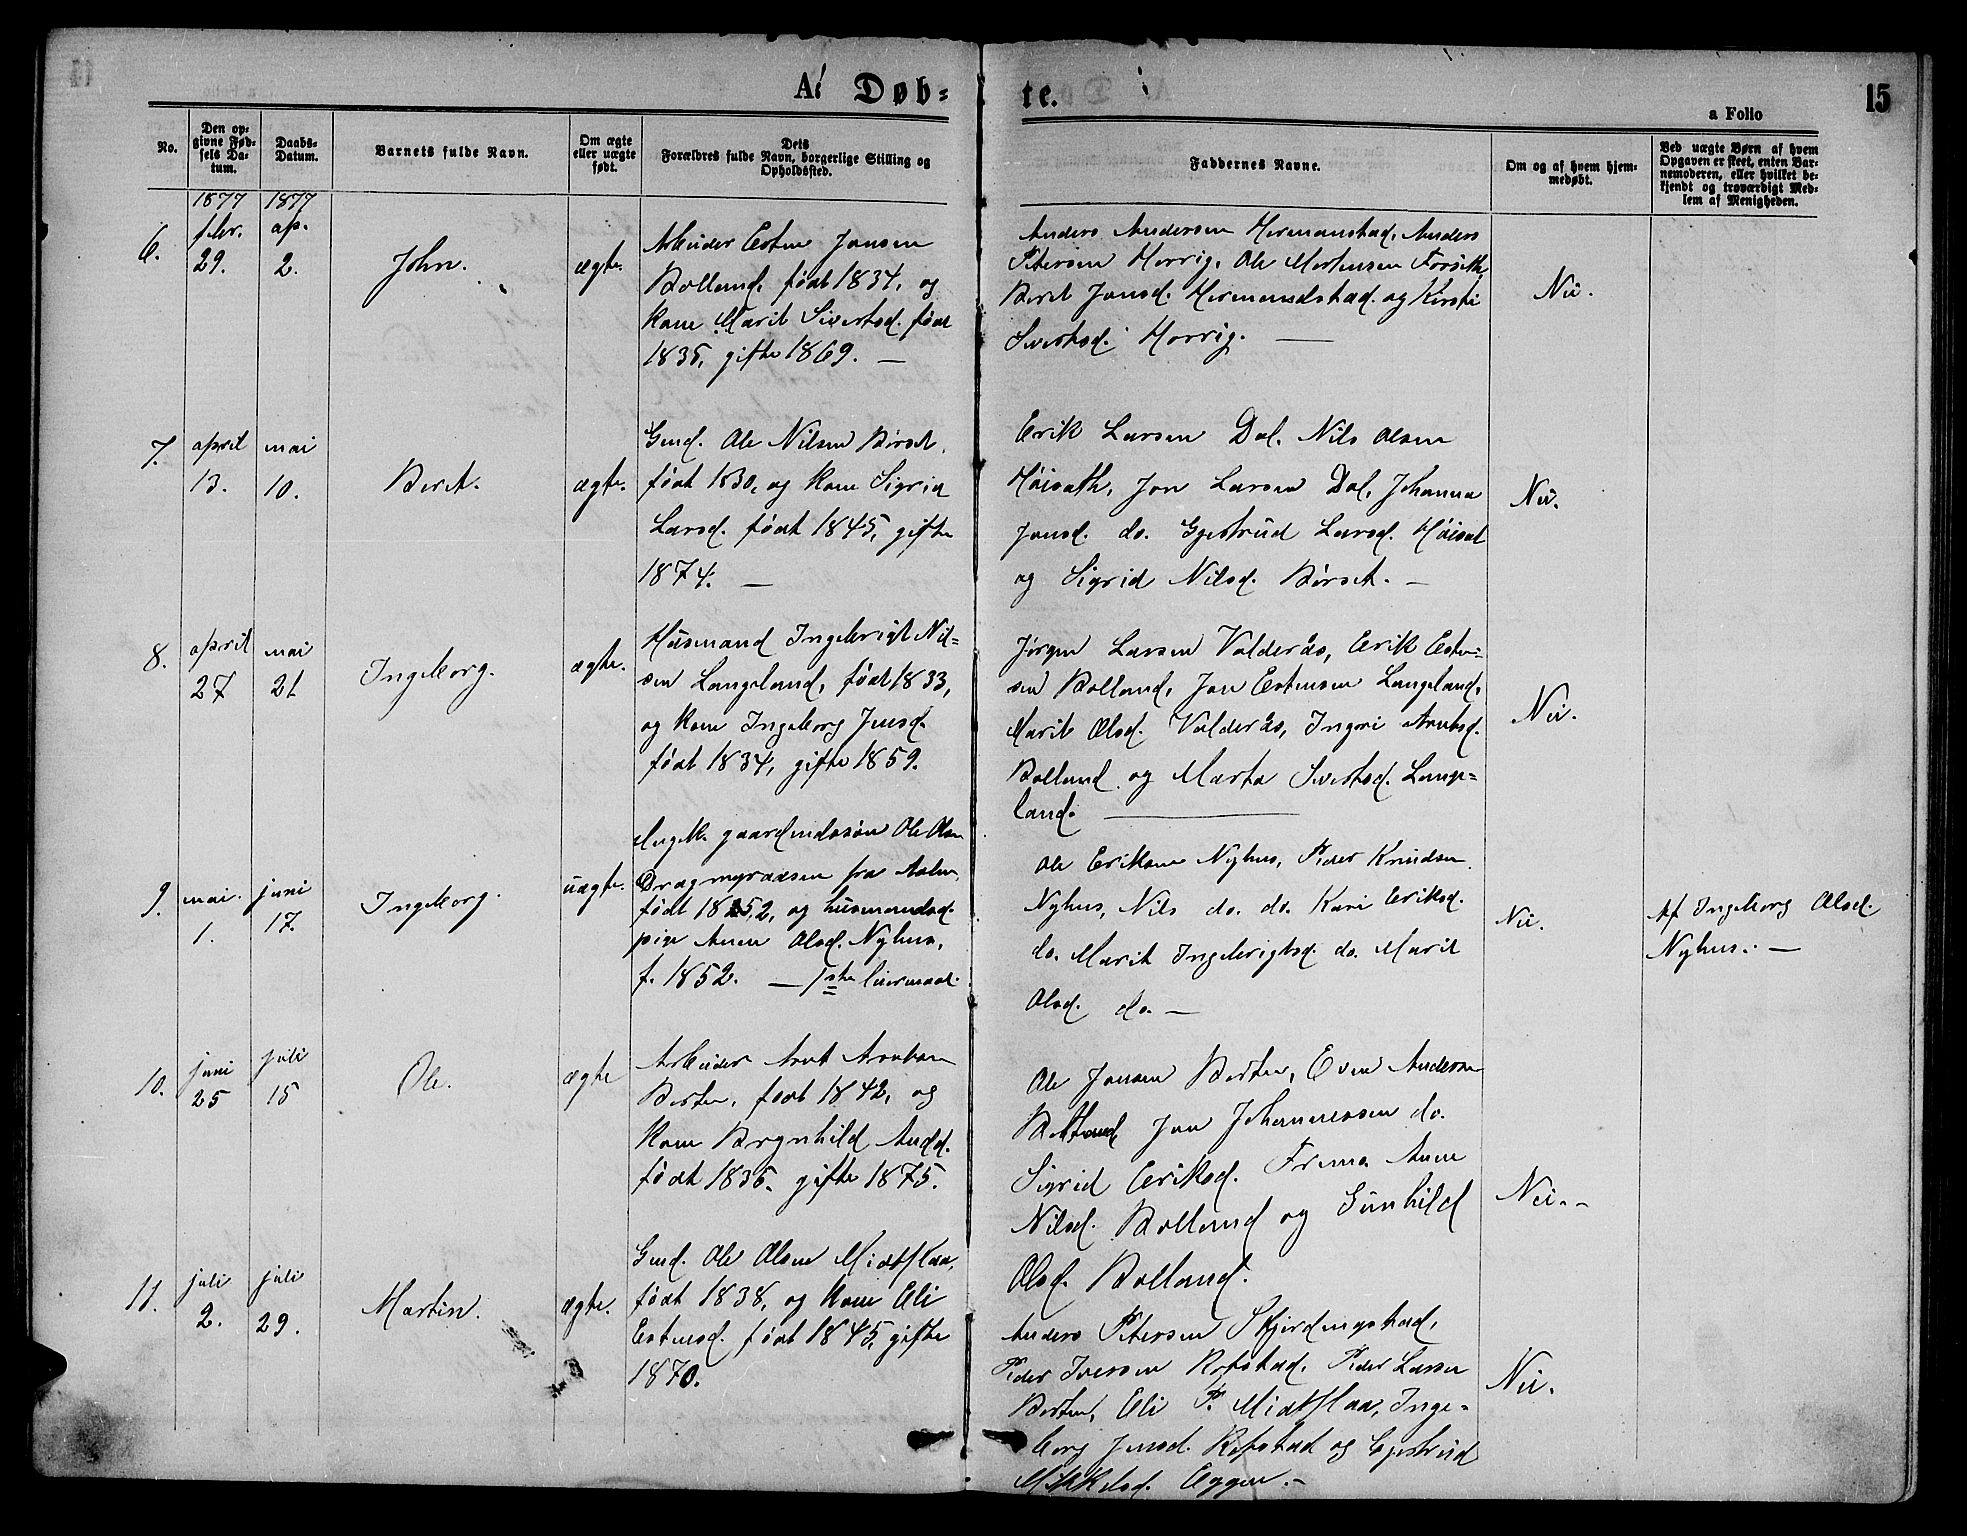 A. Døb=
te.
15
a Folio
No.
Den op=
givne Fød=
sels Da=
tum.
Daabs=
Datum.
Barnets fulde Navn.
Om ægte
eller uægte
født.
Dets
Forældres fulde Navn, borgerlige Stilling og
Opholdssted.
Faddernes Navne.
Om og af hvem hjem=
medøbt.
Ved uægte Børn af hvem
Opgaven er skeet, enten Bar=
nemoderen, eller hvilket be=
kjendt og troværdigt Med=
lem af Menigheden.
1877 1877
6.
febr.
29.
ap.
2.
John.
ægte.
Arbeider Esten Jonsen
Bolland, født 1834, og
Kone Marit Sivertsd. født
1835, gifte 1869. —
Anders Andersen Hermanstad, Anders
Petersen Horrig, Ole Mortensen Forseth,
Beret Jonsd. Hermandstad og Kirsti
Sivertsd. Horrig. —
Nei.
7.
april
13.
mai
10.
Beret.
ægte.
Gmd. Ole Nilsen Børset,
født 1830, og Kone Sigrid
Larsd. født 1845, gifte
1874. —
Erik Larsen Dal, Nils Olsen
Høisath, Jon Larsen Dal, Johanna
Jonsd. do. Gjertrud Larsd. Høisat
og Sigrid Nilsd. Børset. —
Nei.
8.
april
27
mai
21
Ingeborg.
ægte.
Husmand Ingebrigt Nil=
sen Langland, født 1833,
og Kone Ingeborg Jensd.
født 1834, gifte 1859.
Jørgen Larsen Valderås, Erik Esten=
sen Bolland, Jon Estensen Langland,
Marit Olsd. Valderås, Ingri Arntsd.
Bolland og Marta Sivertsd. Lang=
land. —
Nei.
9.
mai.
1.
juni
17.
Ingeborg.
uægte.
Ungk. gaardmdssøn Ole Olsen
Dragmyraasen fra Aalen,
født 1852, og husmandsd.
pige Anne Olsd. Nyhus,
f. 1852. — 1ste leiermaal.
Ole Eriksen Nyhus, Peder Knudsen
Nyhus, Nils do. do. Kari Eriksd.
do. Marit Ingebrigtsd. do. Marit
Olsd. do. —
Nei.
Af Ingeborg Olsd.
Nyhus. —
10.
juni
25
juli
15
Ole.
ægte
Arbeider Arnt Arntsen
Borten, født 1842, og
Kone Brynhild Andd.
født 1835, gifte 1875.
Ole Jonsen Borten, Even Andersen
Bolland Jon Johannessen do.
Sigrid Eriksd. Anne
Nilsd. Bolland og Gunhild
Olsd. Bolland.
Nei. -
11.
juli
2.
juli
29.
Martin.
ægte.
Gmd. Ole Olsen Midtflaa,
født 1838, og Kone Eli
Estensd. født 1845, gifte
1870.
Anders Petersen Skjerdingstad,
Peder Iversen Rofstad, Peder Larsen
Borten, Eli P. Midtflaa, Inge=
borg Jensd. Rofstad og Gjertrud
Mikkelsd. Eggen. —
Nei.